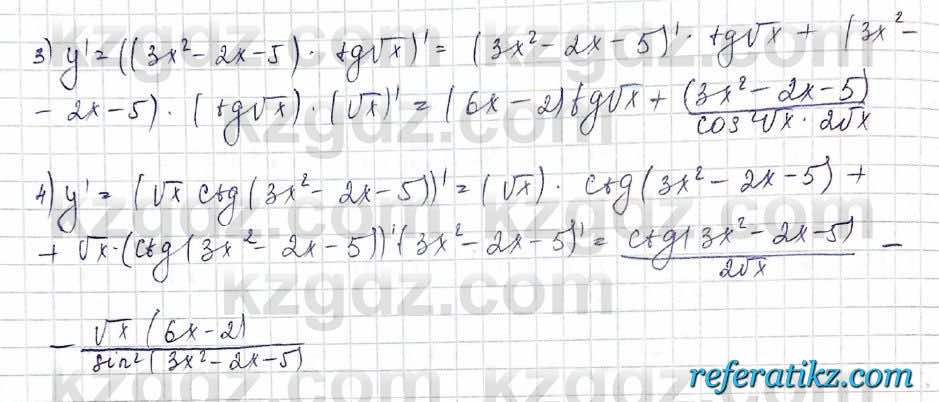 3) y' = ((3x² - 2x - 5) · tg√x)' = (3x² - 2x - 5)' · tg√x + (3x² -
- 2x - 5) · (tg√x) · (√x)' = (6x - 2) tg√x + (3x² - 2x - 5) / cos²√x · 2√x
4) y' = (√x ctg(3x² - 2x - 5))' = (√x) · ctg(3x² - 2x - 5) +
+ √x · (ctg(3x² - 2x - 5))' (3x² - 2x - 5)' = ctg(3x² - 2x - 5) / 2√x -
- √x (6x - 2) / sin²(3x² - 2x - 5)
kzgdz.com
kzgdz.com
kzgdz.com
referatikz.com